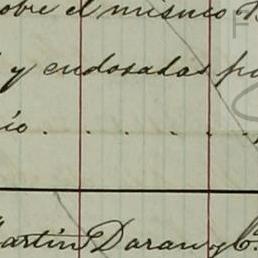 sobre el mismo
y endosadas po
io . . . . . .
Martin Duran y C.